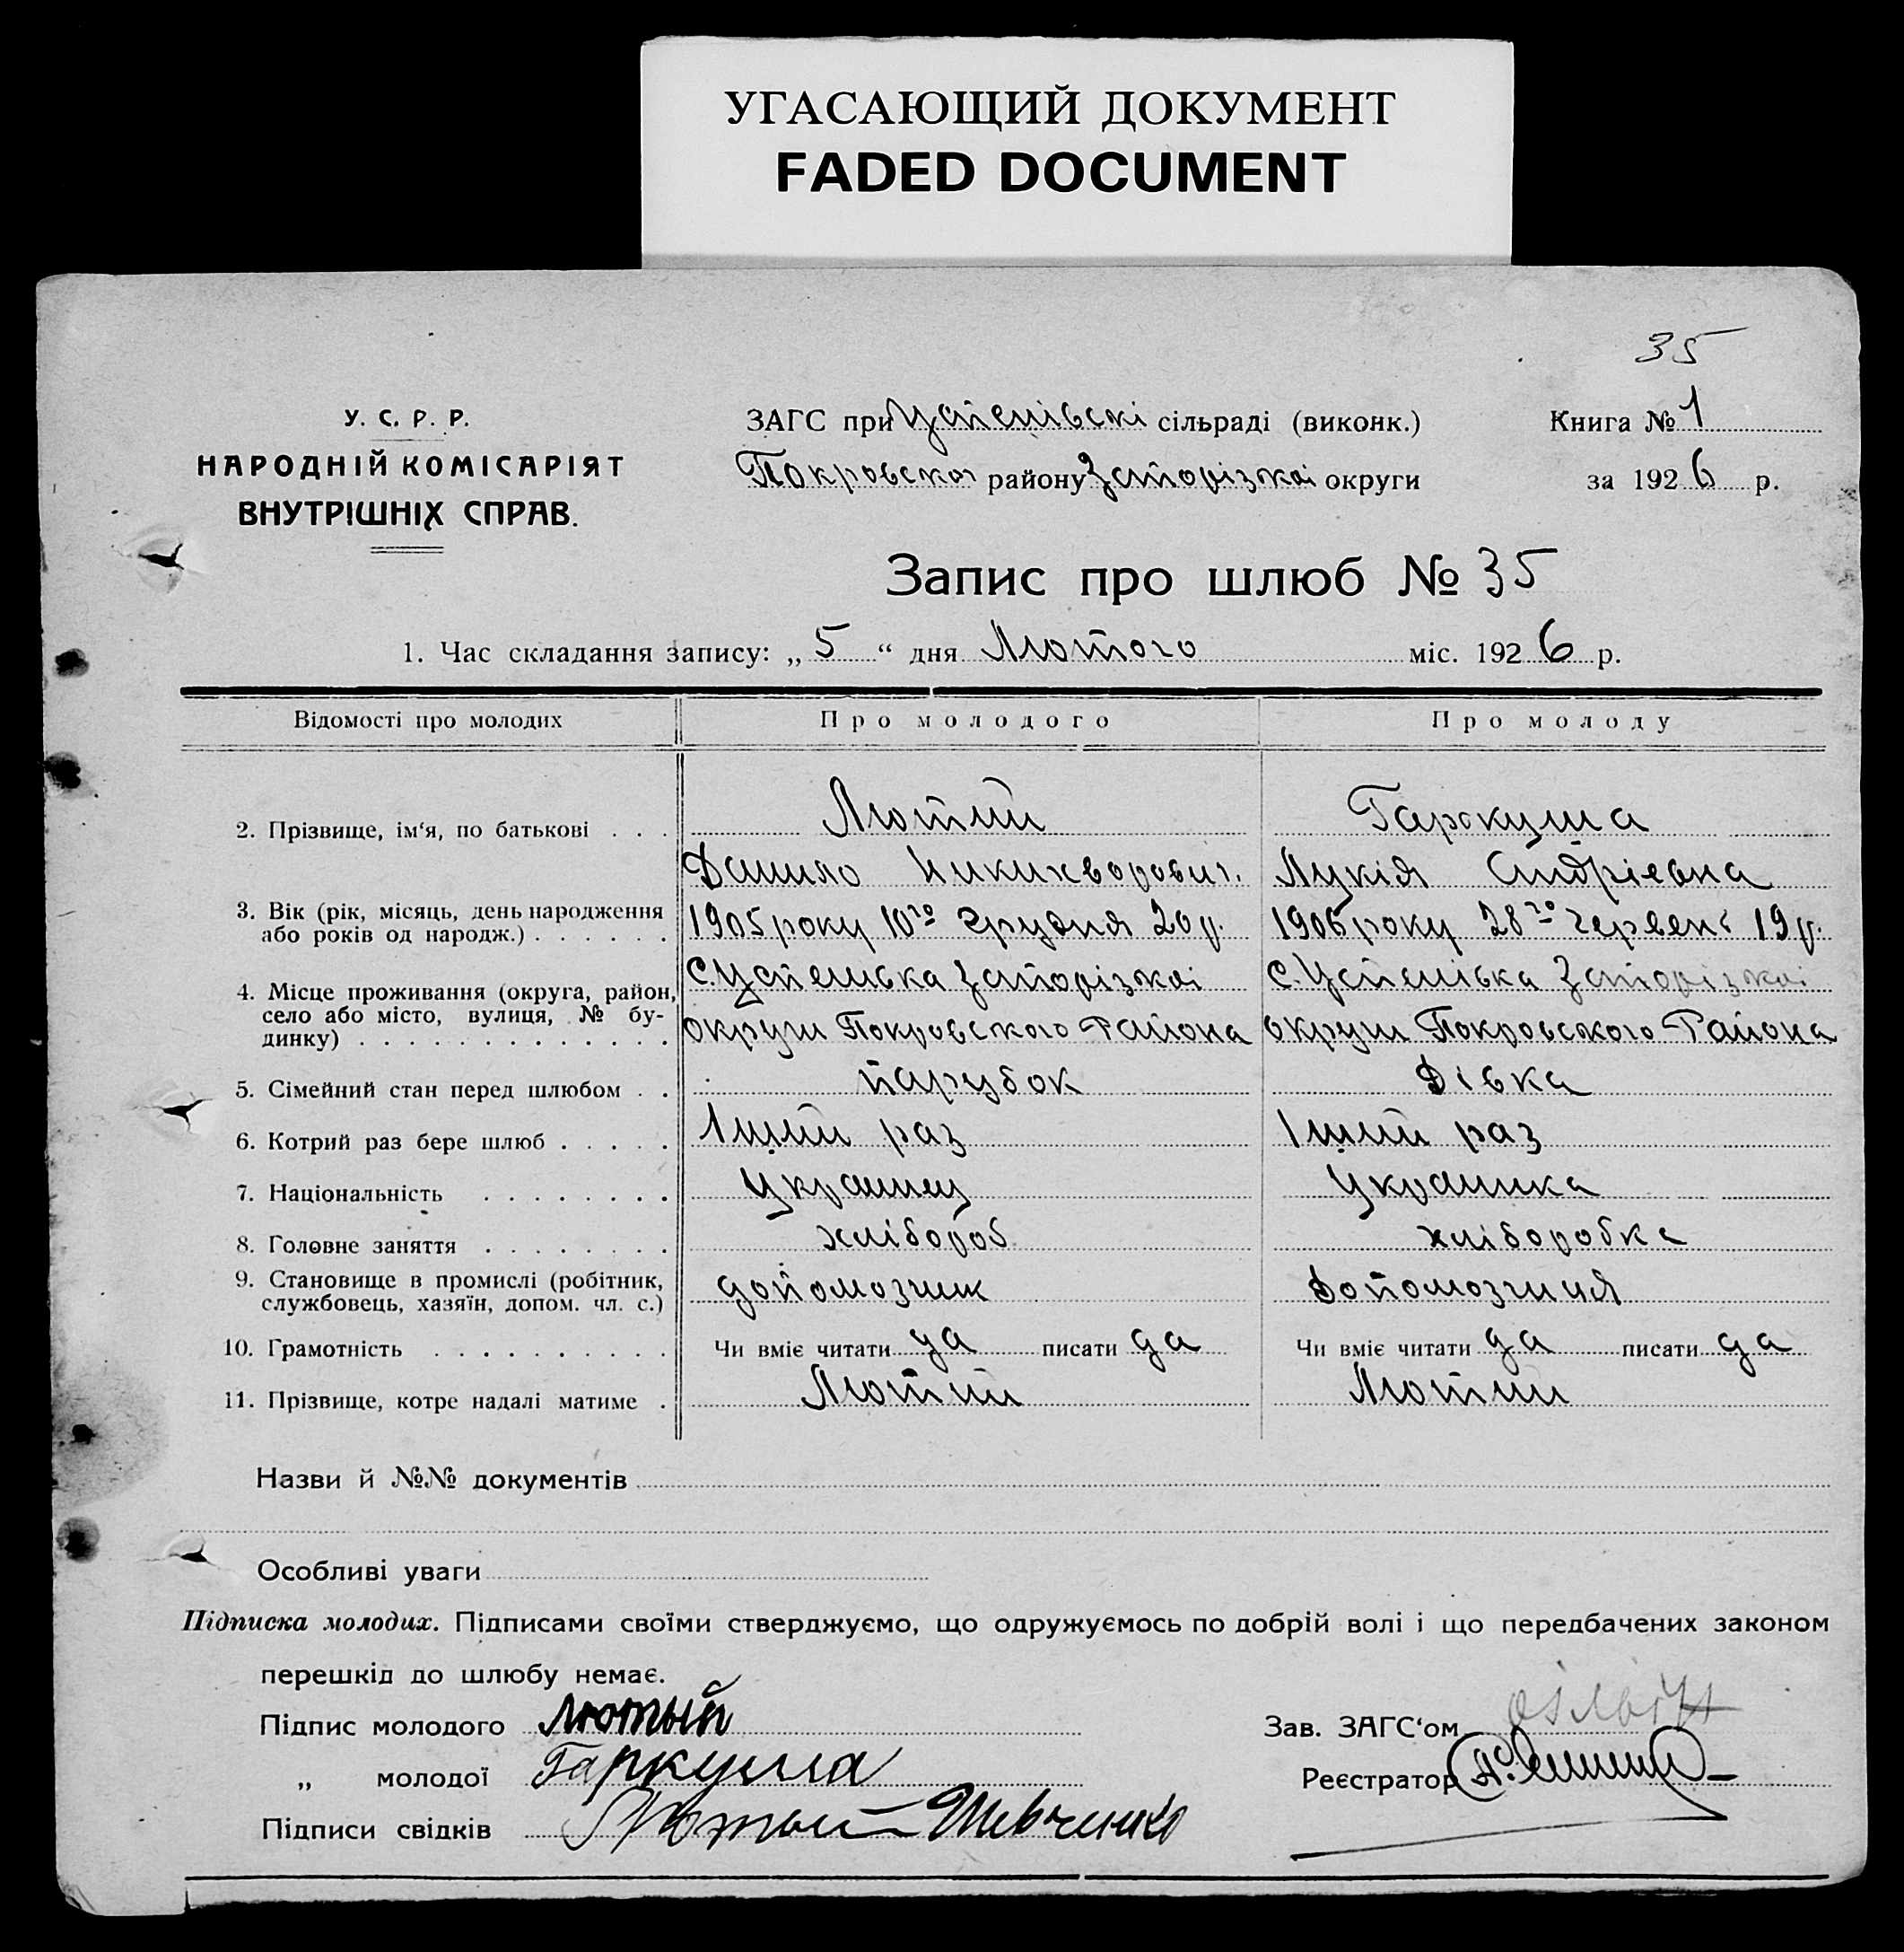 УГАСАЮЩИЙ ДОКУМЕНТ
FADED DOCUMENT
35
У. С. Р. Р.
НАРОДНІЙ КОМІСАРІЯТ
ВНУТРІШНІХ СПРАВ.
ЗАГС при Успенівскі сільраді (виконк.)
Покровської району Запорізкої округи
Книга № 1
за 1926 р.
Запис про шлюб № 35
1. Час складання запису: „5“ дня Лютого міс. 1926 р.
Відомості про молодих Про молодого Про молоду
2. Прізвище, ім‘я, по батькові . . . Лютий Гаркуша
Данило Никихворович. Лукія Андріевна
3. Вік (рік, місяць, день народження або років од народж.) . . . . . . 1905 року 10го Грудня 20 р. 1906 року 28го Червень 19 р.
4. Місце проживання (округа, район, село або місто, вулиця, № будинку) . . . . . . . . . . . . . С. Успенівка Запорізкої С. Успенівка Запорізкої
округи Покровського Района округи Покровського Района
5. Сімейний стан перед шлюбом . . парубок Дівка
6. Котрий раз бере шлюб . . . . . 1ший раз 1ший раз
7. Національність . . . . . . . . Украинец Украинка
8. Головне заняття . . . . . . . . хлібороб хліборобка
9. Становище в промислі (робітник, службовець, хазяїн, допом. чл. с.) допомозчик Допомозчиця
10. Грамотність . . . . . . . . . . Чи вміє читати да писати да Чи вміє читати да писати да
11. Прізвище, котре надалі матиме . Лютий Лютий
Назви й №№ документів
Особливі уваги
Підписка молодих. Підписами своїми стверджуємо, що одружуємось по добрій волі і що передбачених законом
перешкід до шлюбу немає.
Підпис молодого Лютый
Зав. ЗАГС‘ом
„ молодої Гаркуша
Реєстратор
Підписи свідків Лютый Шевченко